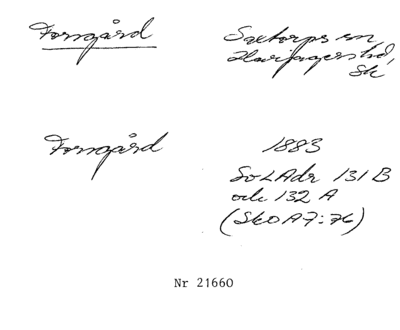 Forngård
Saxtorps sn
Harjagers hd,
Sk
Forngård
1883
SvLAdr 131 B
och 132 A
(SkO A7:76)
Nr 21660